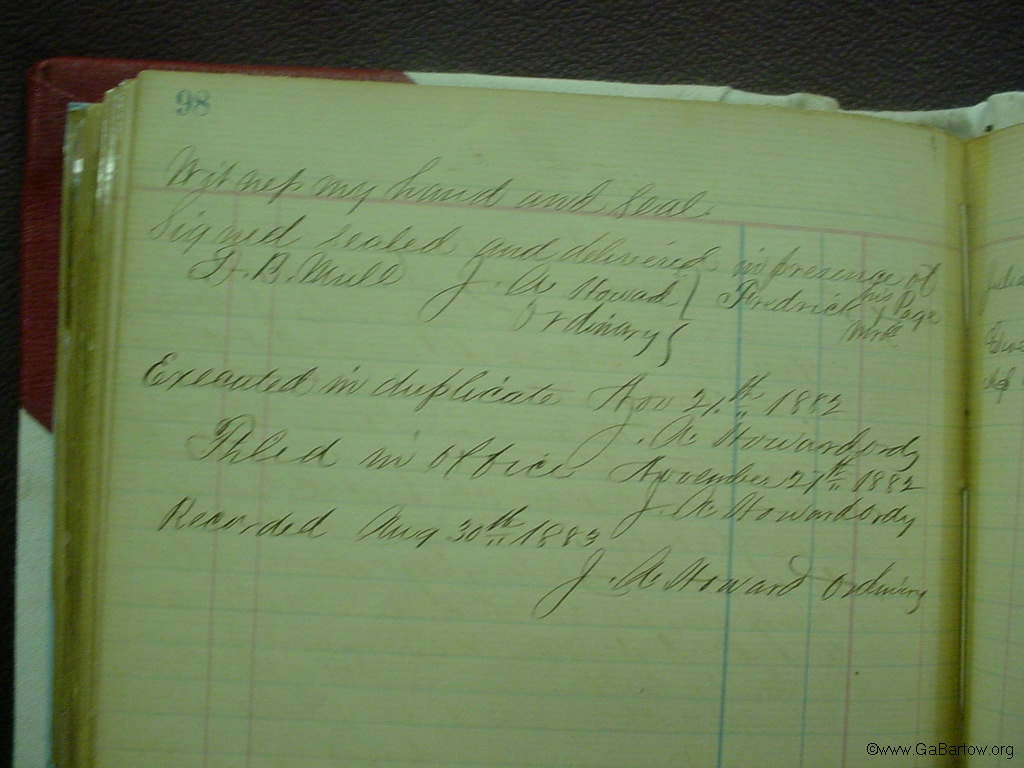 98
Witness my hand and Seal.
Signed sealed and delivered in presence of
B. Mull J. A. Howard } Fredrick his Page
Ordinary } x mrk
Executed in duplicate Nov 27th 1882
J. A. Howard ordy
Filed in office November 27th 1882
J. A. Howard ordy
Recorded Aug 30th 1883
J. A. Howard Ordinary
©www.GaBartow.org